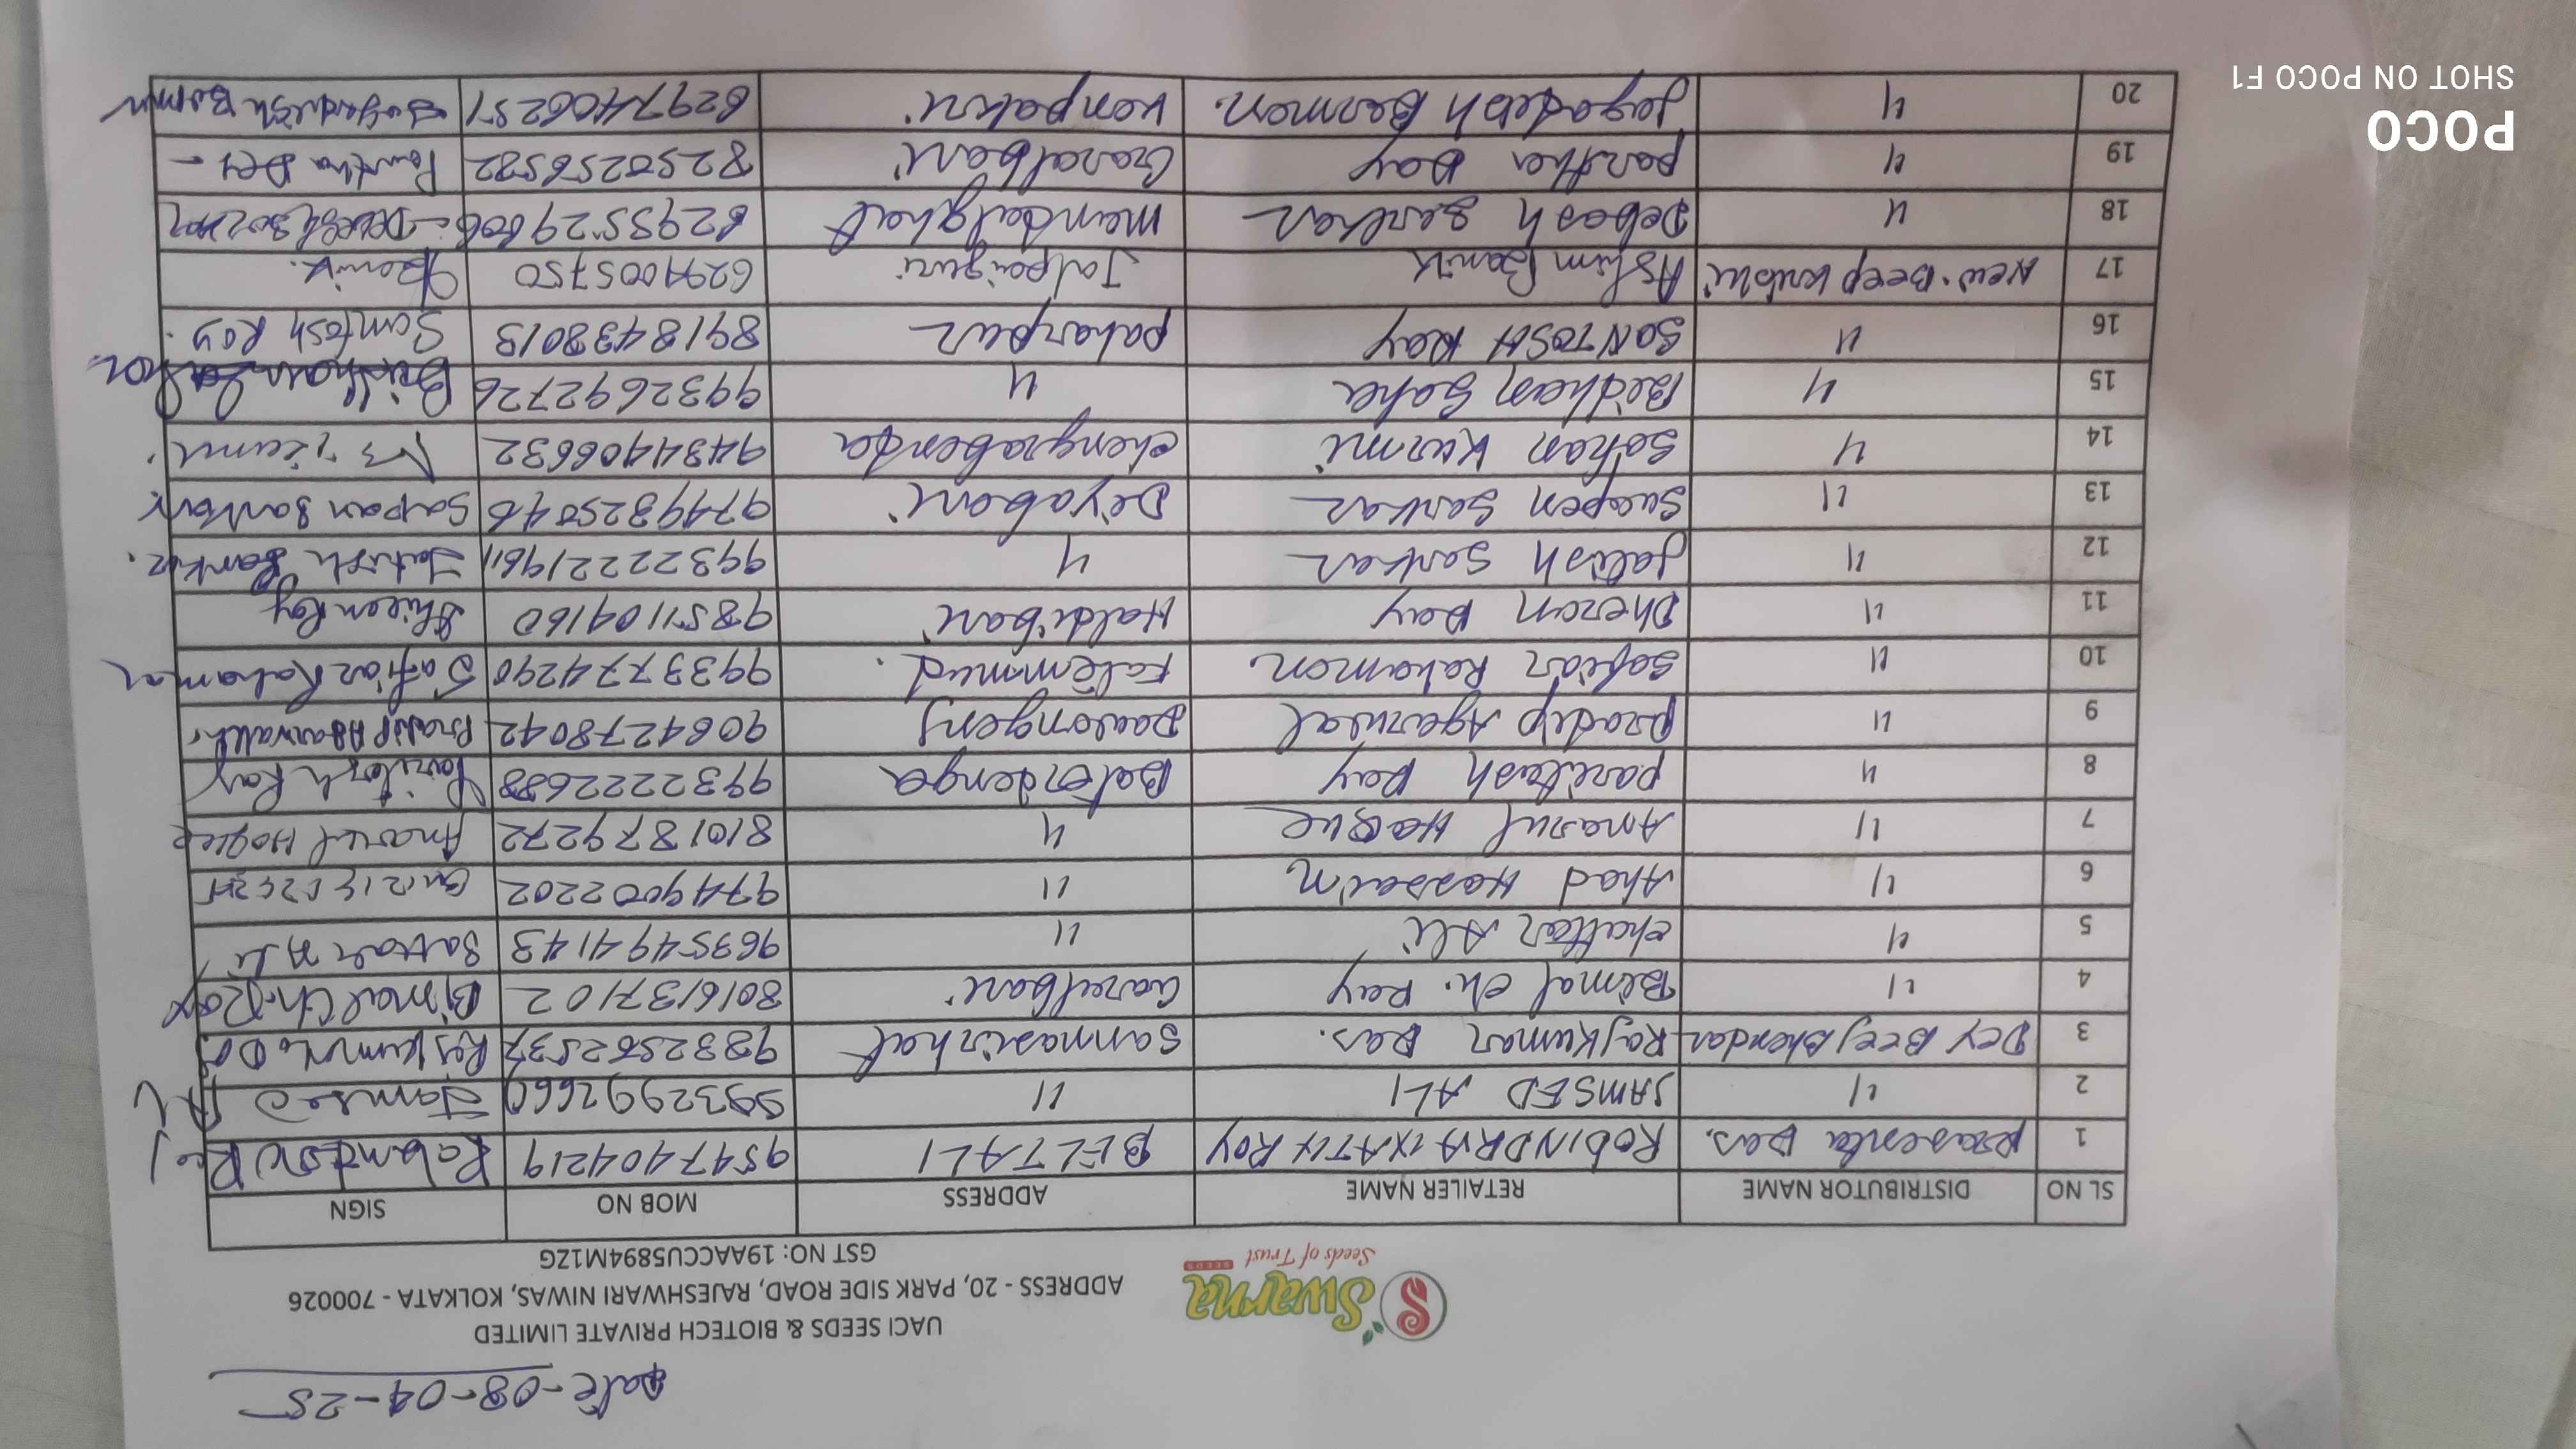 Date-08-04-25
Swarna
SEEDS
Seeds of Trust
UACI SEEDS & BIOTECH PRIVATE LIMITED
ADDRESS - 20, PARK SIDE ROAD, RAJESHWARI NIWAS, KOLKATA - 700026
GST NO: 19AACCU5894M1ZG
SL NO DISTRIBUTOR NAME RETAILER NAME ADDRESS MOB NO SIGN
1 Prasenta Das. ROBINDRA NATH ROY BELTALI 9547404219
2 " JAMSED ALI " Jamsed Ali
3 Dey Beej Bhendar Rajkumar Das. Sannasirhat Rajkumar Das
4 " Bimal Ch. Ray Garalbari 8016137102 Bimal Ch. Roy
5 " Chattar Ali " 9635494143 Sattar Ali
6 " Ahad Hossain " 9749002202
7 " Anarul Haque " 8101879272 Anarul Hoque
8 " Paritosh Ray Batendenga Paritosh Ray
9 " Pradip Agarwal Dawongenj 9064278042 Pradip Agarwalla
10 " Safiar Rahamon. Falemmud. 9933774290 Safiar Rahaman
11 " Dheren Ray Haldibari 9851104160 Dhiren Roy
12 " Jatish Sarkar " 9932221961 Jatish Sarkar.
13 " Swapen Sarkar Deyabari 9749325046 Sapan Sarkar
14 " Sohan Kurmi Chengrabenda 9434406632
15 " Bidhan Saha " 9932692726 Bidhan Saha
16 " SANTOSH Ray Paharpur 8918438013 Santosh Roy.
17 New. Beej Krishi Ashim Banik Jalpaiguri 6297005750 Banik.
18 " Debash Sarkar Mandalghat
19 " Partha Day Garalbari 8250256582 Partha Dey
20 " Jagadesh Barmon. Konpakri 6297406251 Jagadish Barman
POCO
SHOT ON POCO F1